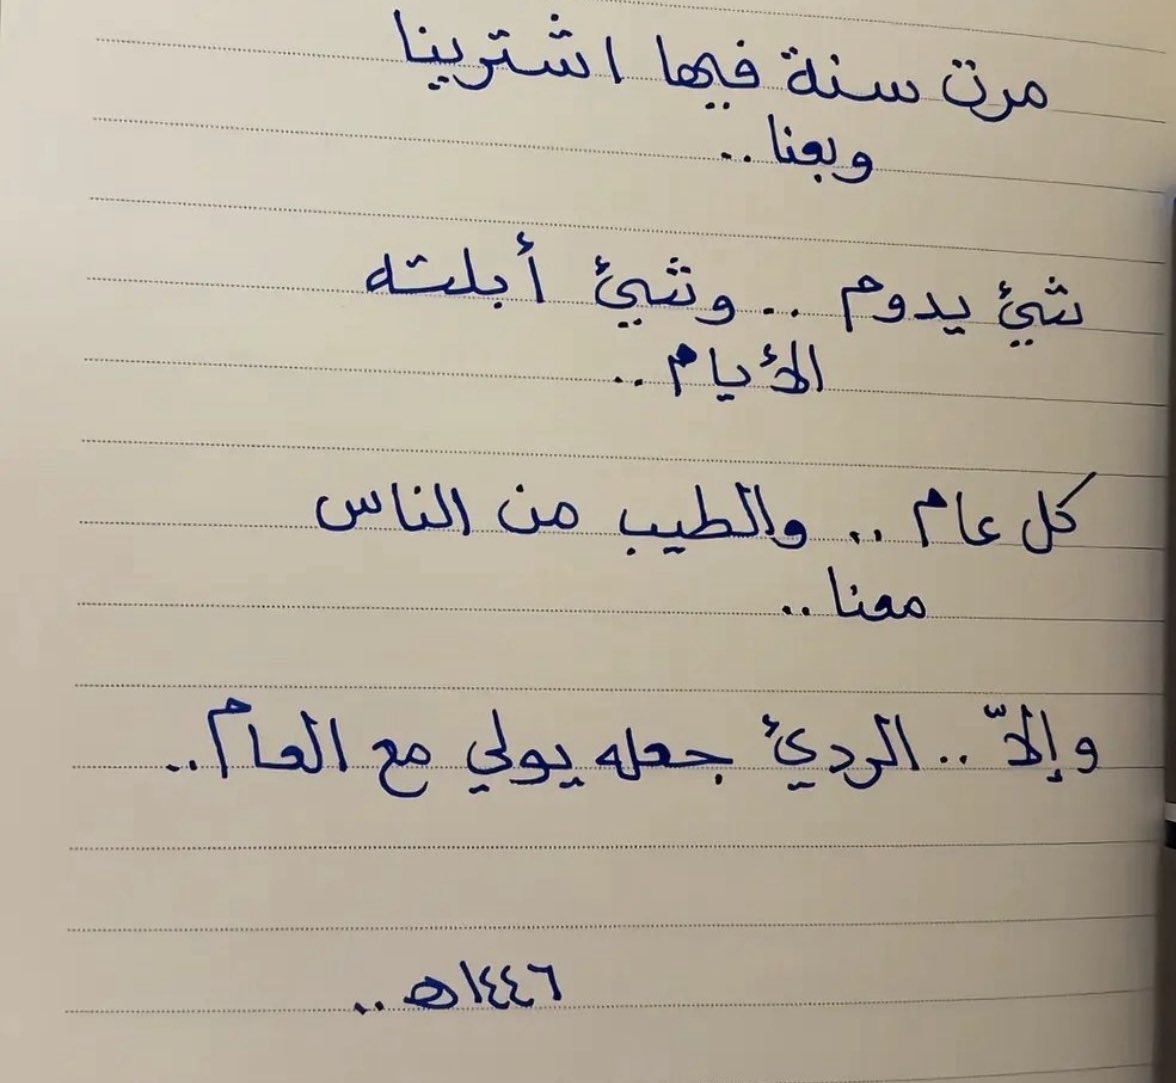 مرت سنة فيها اشترينا
وبعنا ..
شئ يدوم .. وشئ أبلته
الأيام ..
كل عام .. والطيب من الناس
معنا ..
وإلاّ .. الردئ جعله يولي مع العام ..
١٤٤٦هـ ..